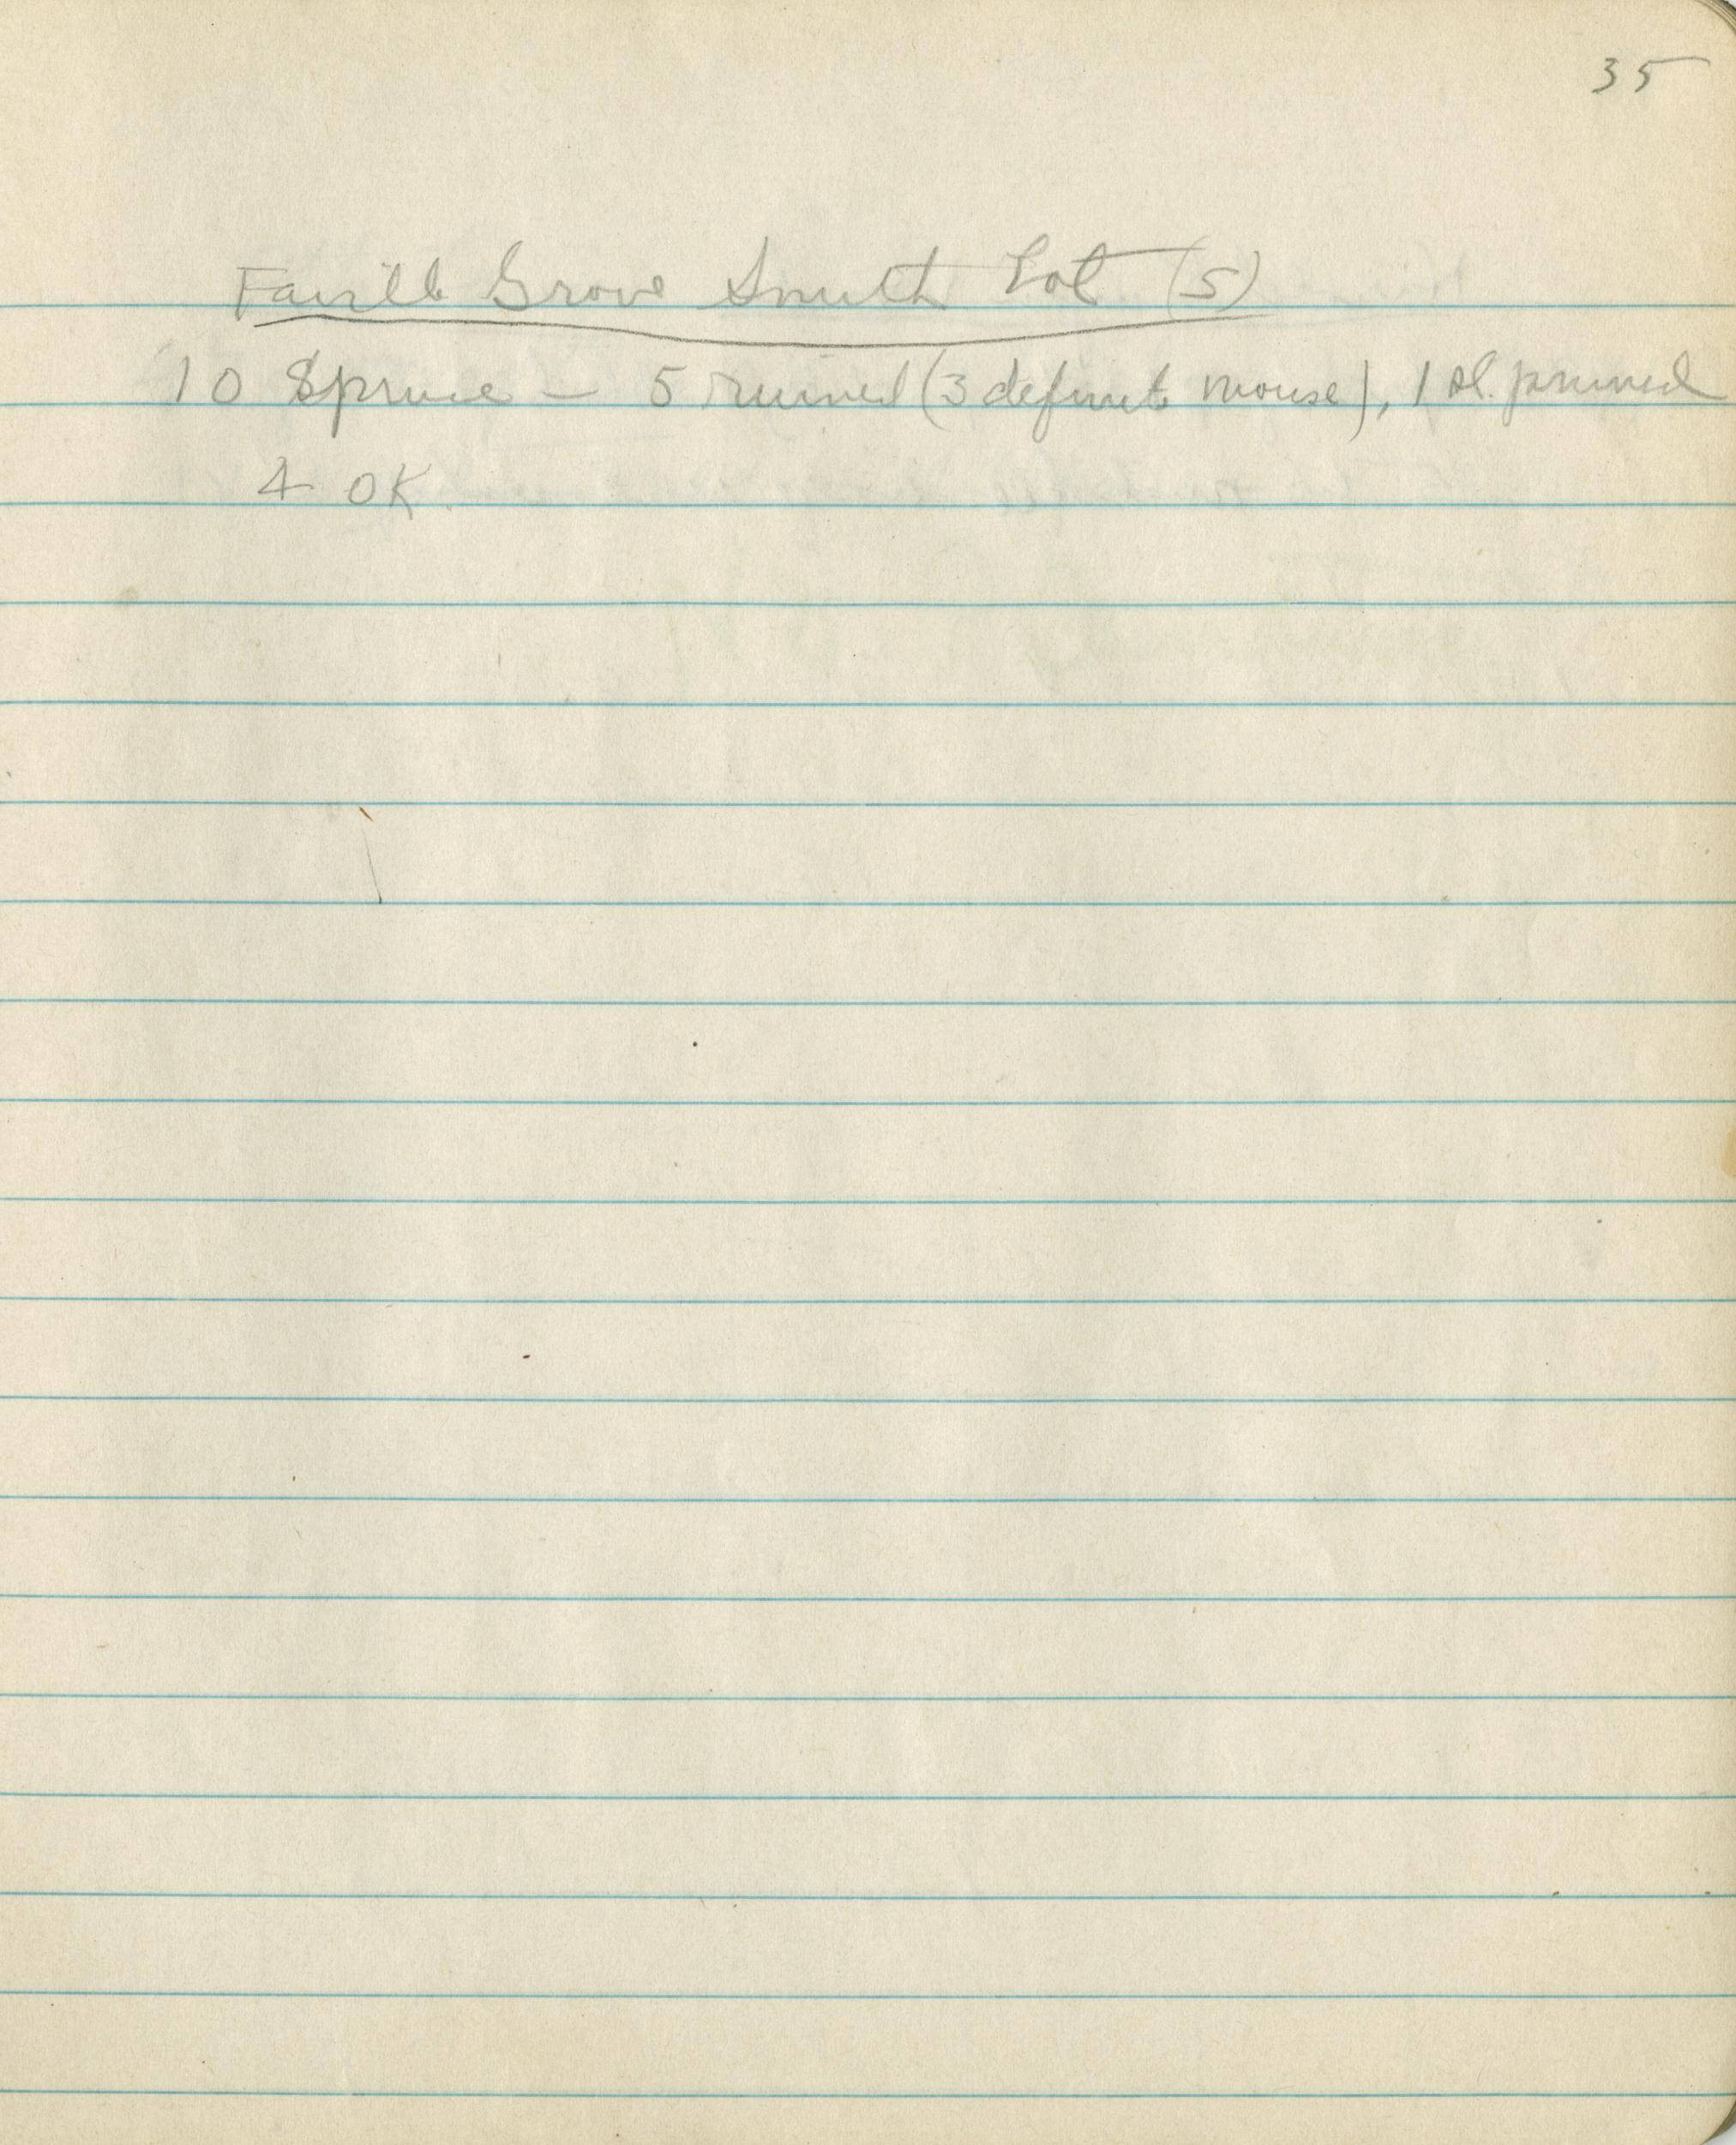 35
Faville Grove Smith Lot (S)
10 Spruce — 5 ruined (3 definite mouse), 1 sl. pruned
4 OK.